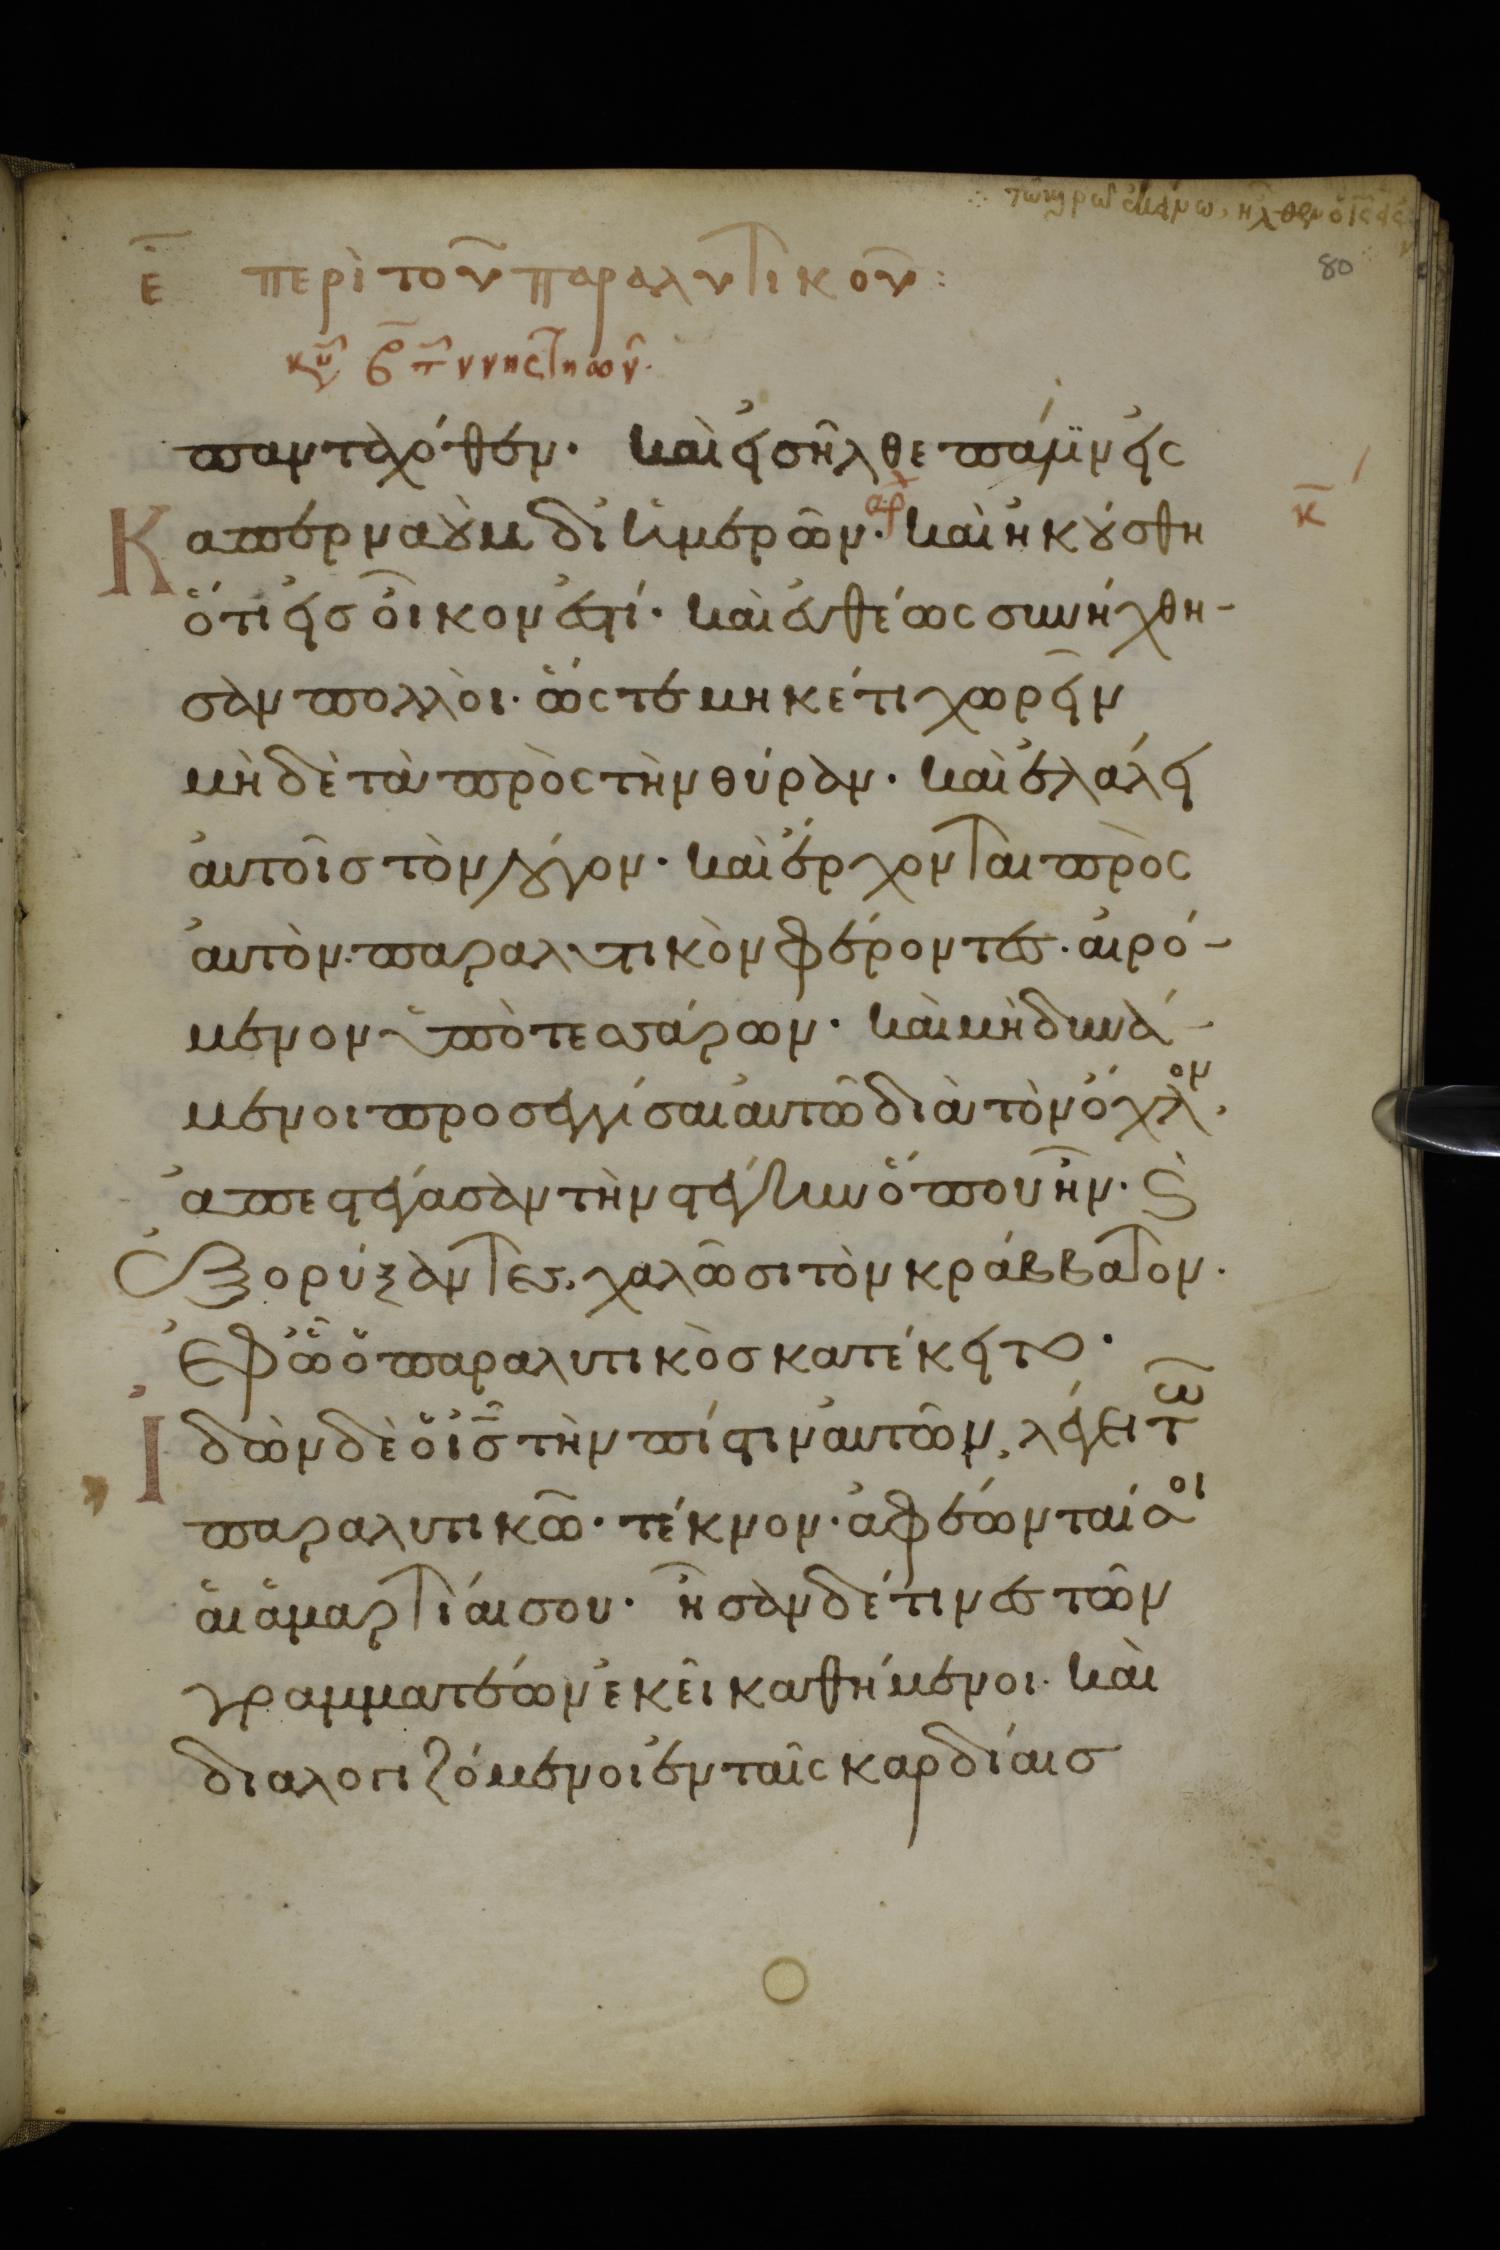 80
ε̄ περὶ τοῦ παραλυτικοῦ :
πανταχόθεν. καὶ εἰσῆλθε πάλιν εἰς
Καπερναοὺμ δι ἡμερῶν. καὶ ἠκούσθη
ὅτι εἰς οἶκον ἐστί. καὶ εὐθέως συνήχθη-
σὰν πολλοὶ. ὥστε μηκέτι χωρεῖν
μὴ δὲ τὰ πρὸς τὴν θύραν. καὶ ἐλάλει
αὐτοῖς τὸν λόγον. καὶ ἔρχονται πρὸς
αὐτὸν. παραλυτικὸν φέροντες. αἰρό-
μενον ὑπὸ τεσσάρων. καὶ μὴ δυνά-
μενοι προσεγγίσαι αὐτῶ διὰ τὸν ὄχλον.
ἀπεστέγασαν τὴν στέγην ὅπου ἦν. ϗ
ἐξορύξαντες, χαλῶσι τὸν κράββατον.
ἐφ ὧ ὁ παραλυτικὸς κατέκειτο.
Ἰδὼν δὲ ὁ ις̄ τὴν πίστιν αὐτῶν, λέγει τω
παραλυτικῶ. τέκνον. ἀφέωνταί σοι
αἱ ἁμαρτίαι σου. ἦσαν δέ τινες τῶν
γραμματέων ἐκεῖ καθήμενοι. καὶ
διαλογιζόμενοι ἐν ταῖς καρδίαις
κ̄